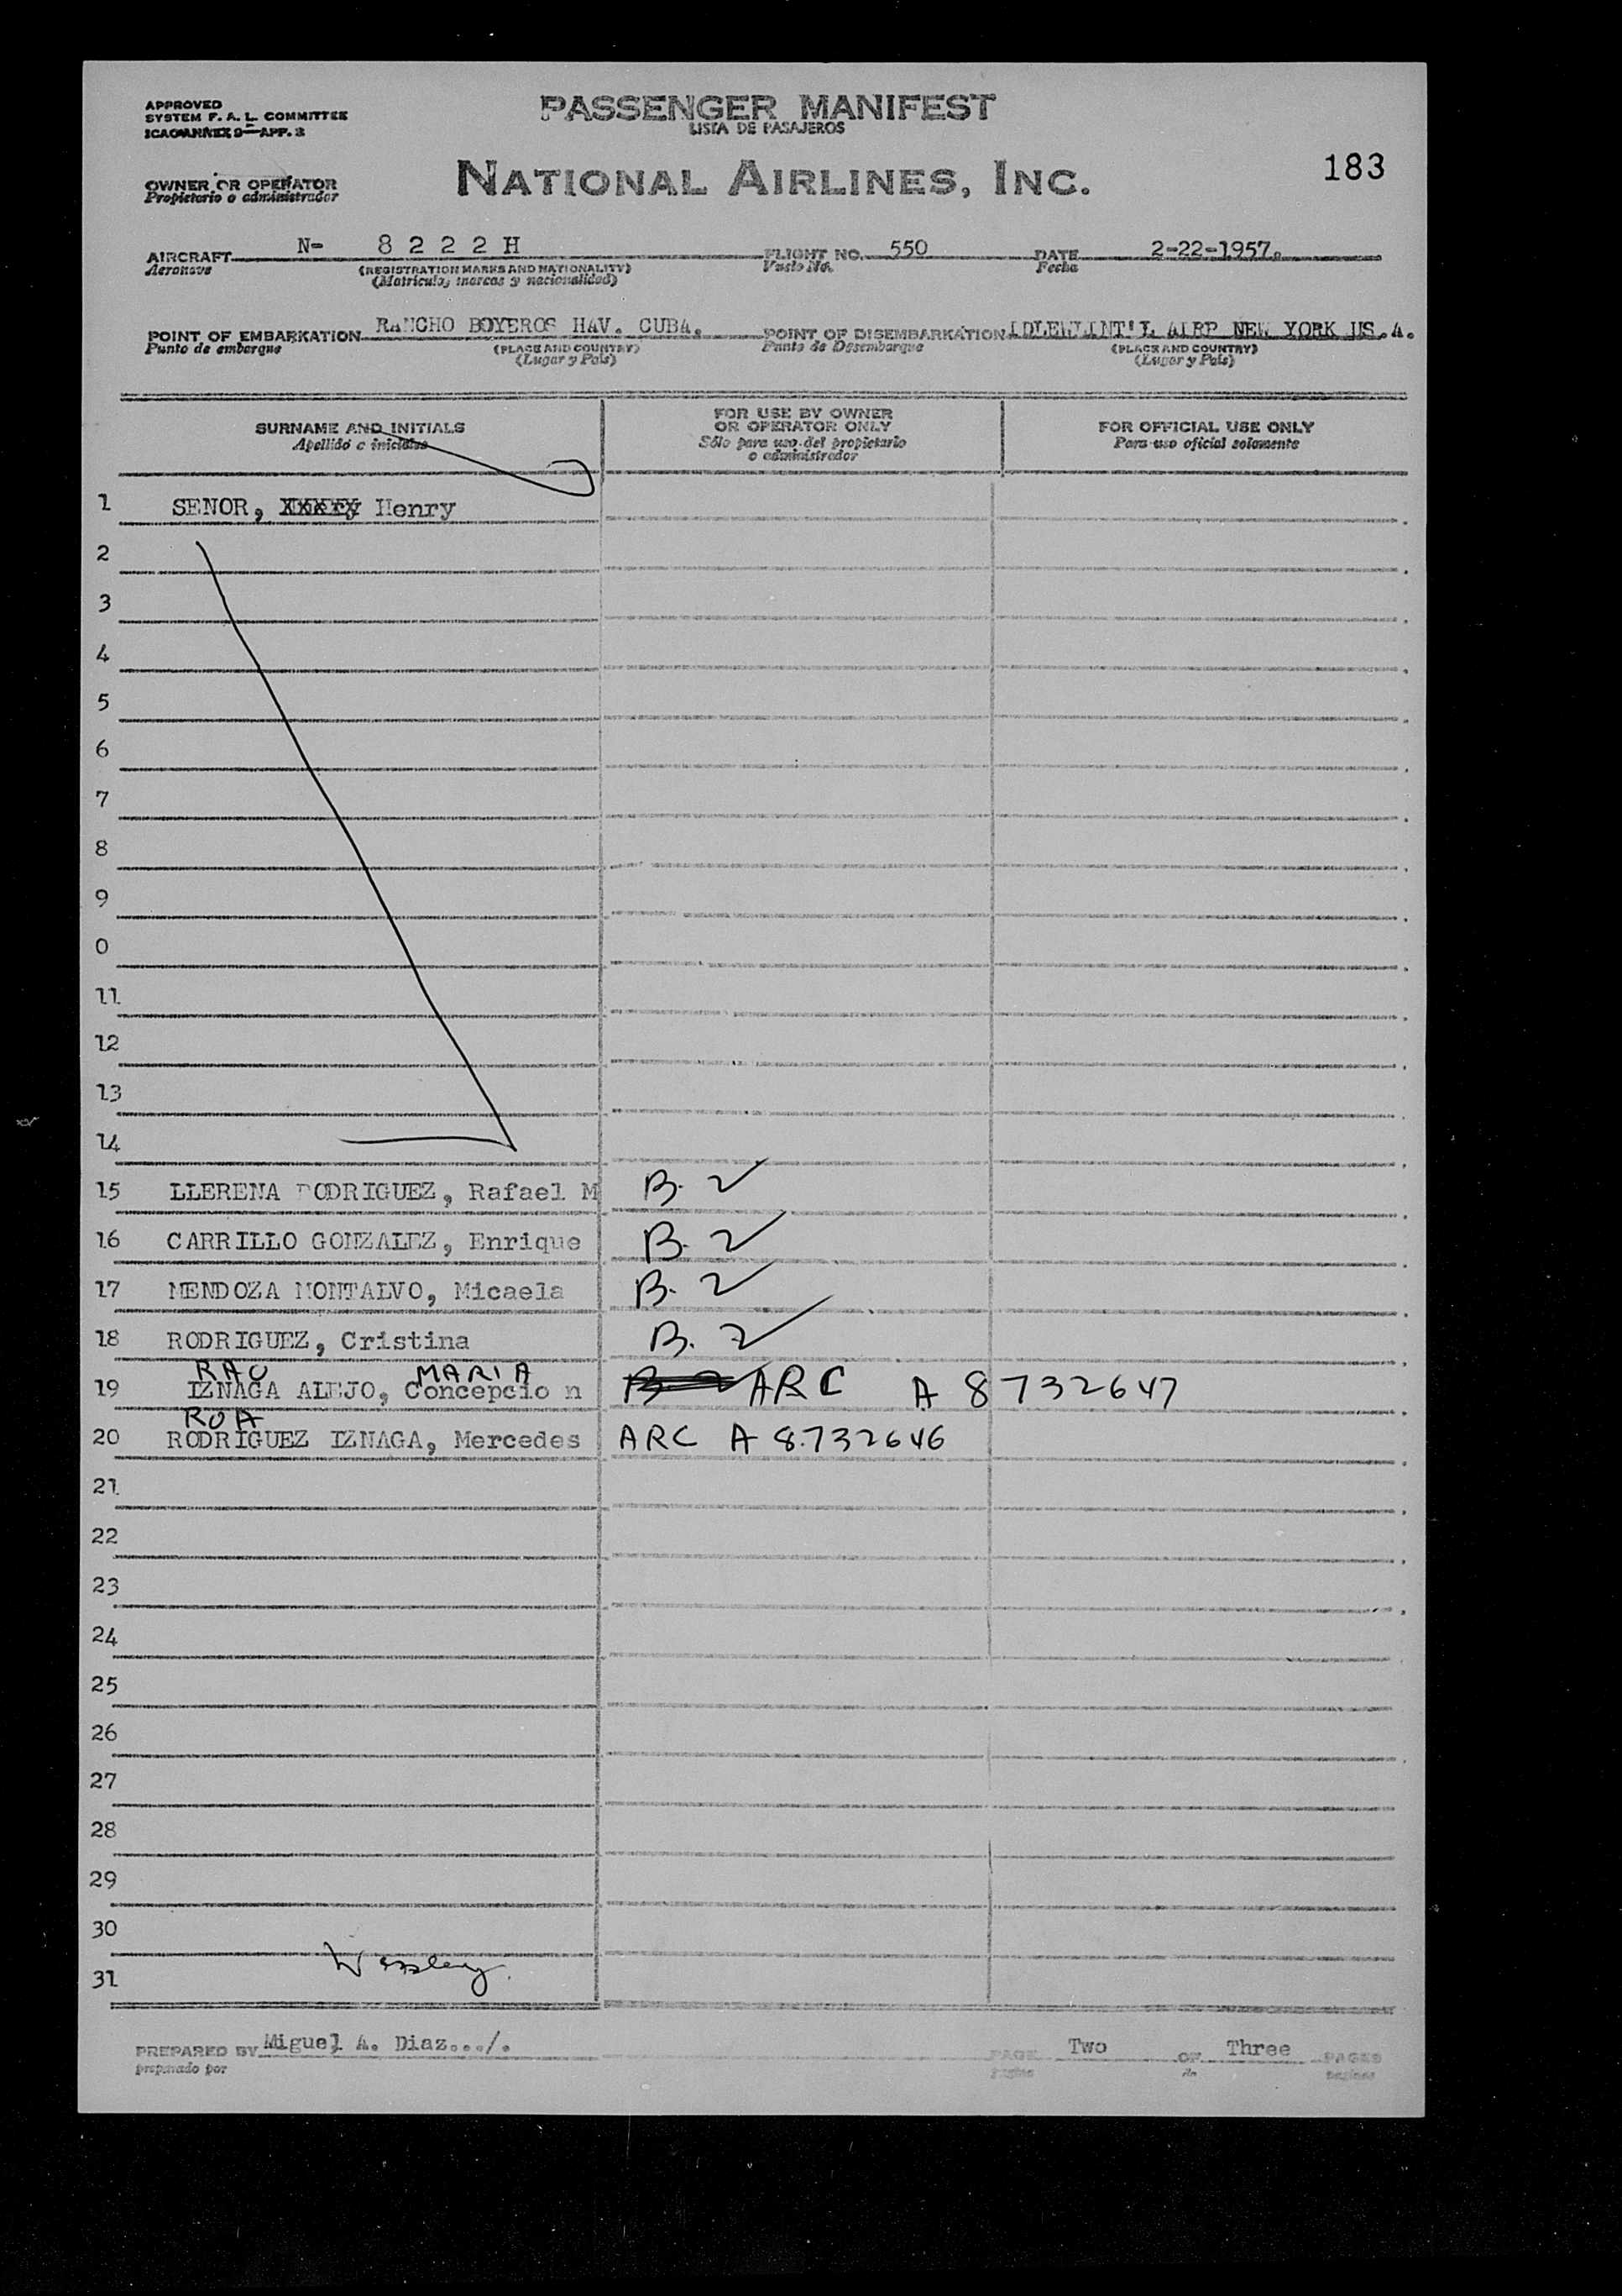 APPROVED
SYSTEM F. A. L. COMMITTEE
ICAO ANNEX 9—APP. 3
PASSENGER MANIFEST
LISTA DE PASAJEROS
NATIONAL AIRLINES, INC.
183
OWNER OR OPERATOR
Propietario o administrador
AIRCRAFT N- 8 2 2 2 H FLIGHT NO. 550 DATE 2-22-1957.
Aeronave (REGISTRATION MARKS AND NATIONALITY) Vuelo No. Fecha
(Matricula, marcas y nacionalidad)
POINT OF EMBARKATION RANCHO BOYEROS HAV. CUBA. POINT OF DISEMBARKATION IDLEWLINT'L AIRP NEW YORK US.A.
Punto de embarque (PLACE AND COUNTRY) Punto de Desembarque (PLACE AND COUNTRY)
(Lugar y País) (Lugar y País)
SURNAME AND INITIALS
Apellido e iniciales
FOR USE BY OWNER
OR OPERATOR ONLY
Sólo para uso del propietario
o administrador
FOR OFFICIAL USE ONLY
Para uso oficial solamente
1 SENOR, Henry
2
3
4
5
6
7
8
9
0
11
12
13
14
15 LLERENA RODRIGUEZ, Rafael M B. 2
16 CARRILLO GONZALEZ, Enrique B. 2
17 MENDOZA MONTALVO, Micaela B. 2
18 RODRIGUEZ, Cristina B. 2
RAU MARIA
19 IZNAGA ALEJO, Concepcio n B-2 ARC A 8732647
ROA
20 RODRIGUEZ IZNAGA, Mercedes ARC A 8.732646
21
22
23
24
25
26
27
28
29
30
31
PREPARED BY Miguel A. Diaz.../. PAGE Two OF Three PAGES
preparado por página de páginas